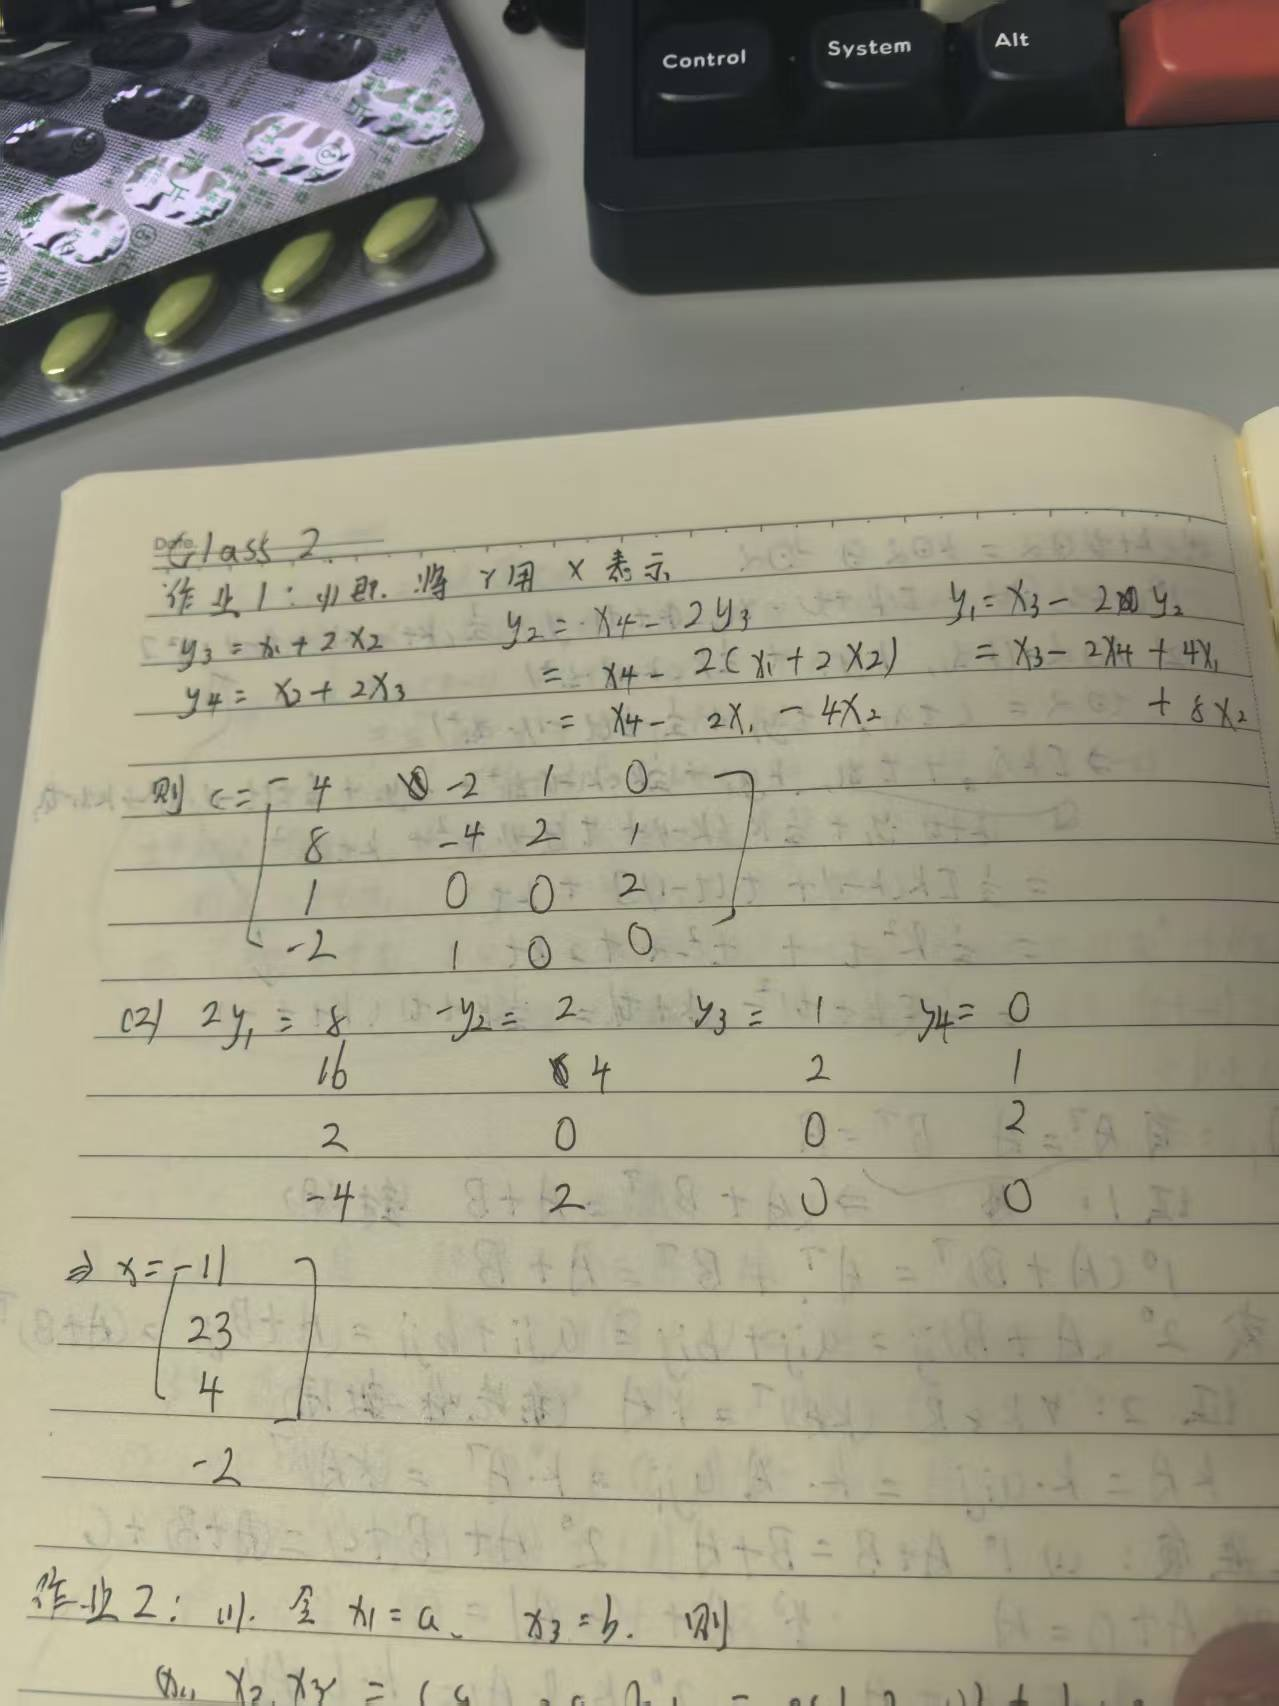 Control System Alt
Date.
Class 2.
作业1: (1) 即.将 Y用 X 表示
y₃ = x₁ + 2x₂ y₂ = x₄ - 2y₃ y₁ = x₃ - 2y₂
y₄ = x₂ + 2x₃ = x₄ - 2(x₁ + 2x₂) = x₃ - 2x₄ + 4x₁
= x₄ - 2x₁ - 4x₂ + 8x₂
则 C = 4 -2 1 0
8 -4 2 1
1 0 0 2
-2 1 0 0
(2) 2y₁ = 8 -y₂ = 2 y₃ = 1 y₄ = 0
16 4 2 1
2 0 0 2
-4 2 0 0
⇒ x = -11
23
4
-2
作业2: (1). 令 x₁ = a、 x₃ = b. 则